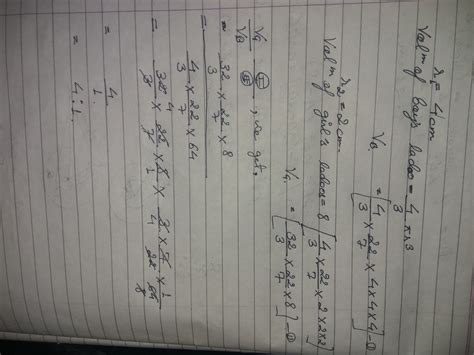 r₁ = 4cm
Valm of boys ladoo = 4/3 πr³
V_B = [4/3 × 22/7 × 4×4×4] — ①
r₂ = 2cm
Valm of girl's ladoo = 8 [4/3 × 22/7 × 2×2×2]
V_G = [32/3 × 22/7 × 8] — ②
V_G/V_B = ②/①, we get,
= 32/3 × 22/7 × 8
4/3 × 22/7 × 64
= 32/3 × 22/7 × 8/1 × 3/4 × 7/22 × 1/64
= 4/1
= 4:1